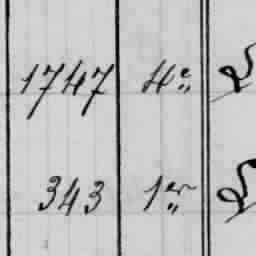 1747 4e
343 1er